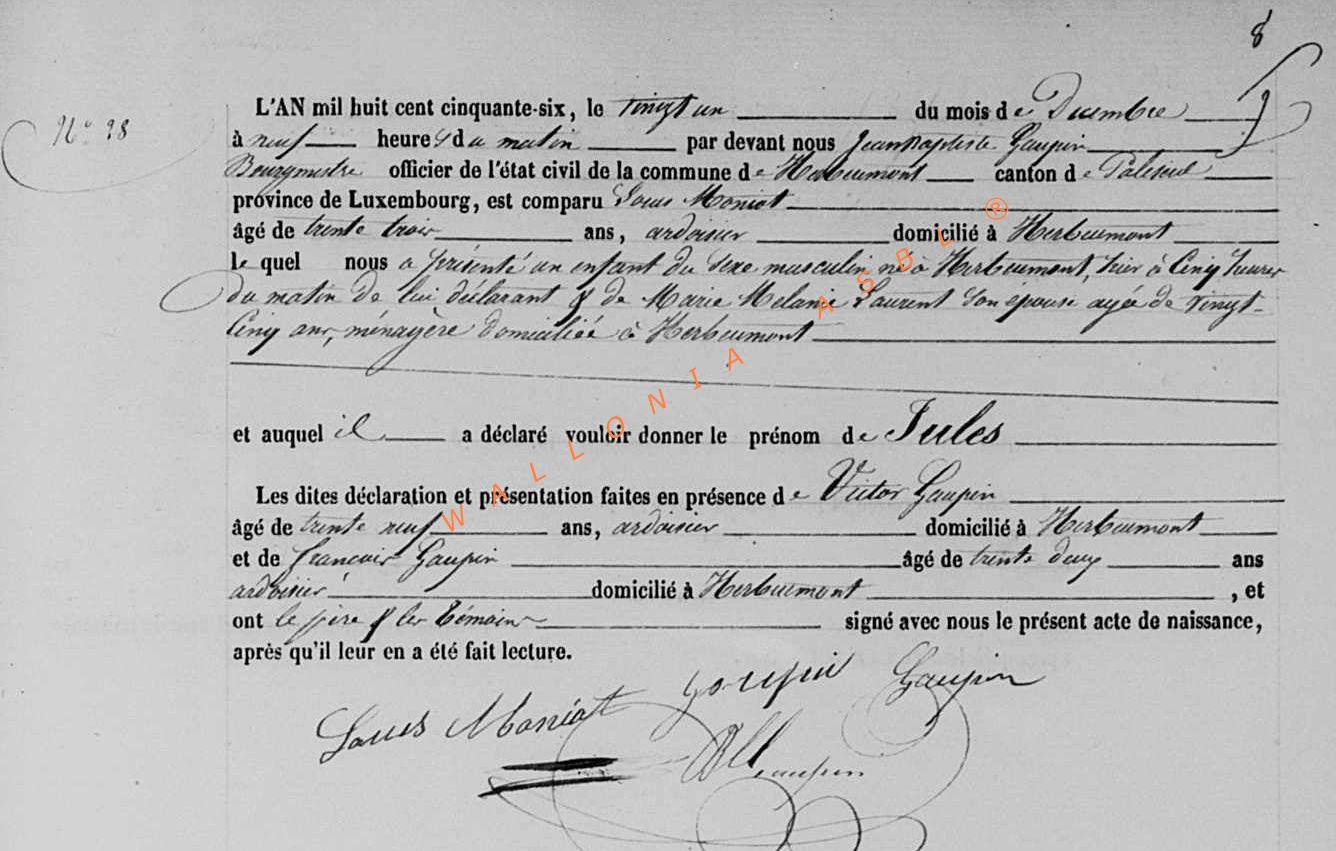 8
L'AN mil huit cent cinquante-six, le vingt un du mois de Decembre
N° 38
à neuf heures du matin par devant nous Jean Baptiste Gaupin
Bourgmestre officier de l'état civil de la commune de Herbeumont canton de Paliseul
province de Luxembourg, est comparu Louis Moniot
âgé de trente trois ans, ardoisier domicilié à Herbeumont
le quel nous a présenté un enfant du sexe masculin né à Herbeumont, hier à Cinq heures
du matin de lui déclarant & de Marie Melanie Laurent son épouse agée de vingt-
Cinq ans, ménagère domiciliée à Herbeumont
et auquel il a déclaré vouloir donner le prénom de Jules
Les dites déclaration et présentation faites en présence de Victor Gaupin
âgé de trente neuf ans, ardoisier domicilié à Herbeumont
et de francois Gaupin âgé de trente deux ans
ardoisier domicilié à Herbeumont, et
ont le père & les témoins signé avec nous le présent acte de naissance,
après qu'il leur en a été fait lecture.
Louis Moniot goupin Gaupin
Gaupin
WALLONIA ASBL ®